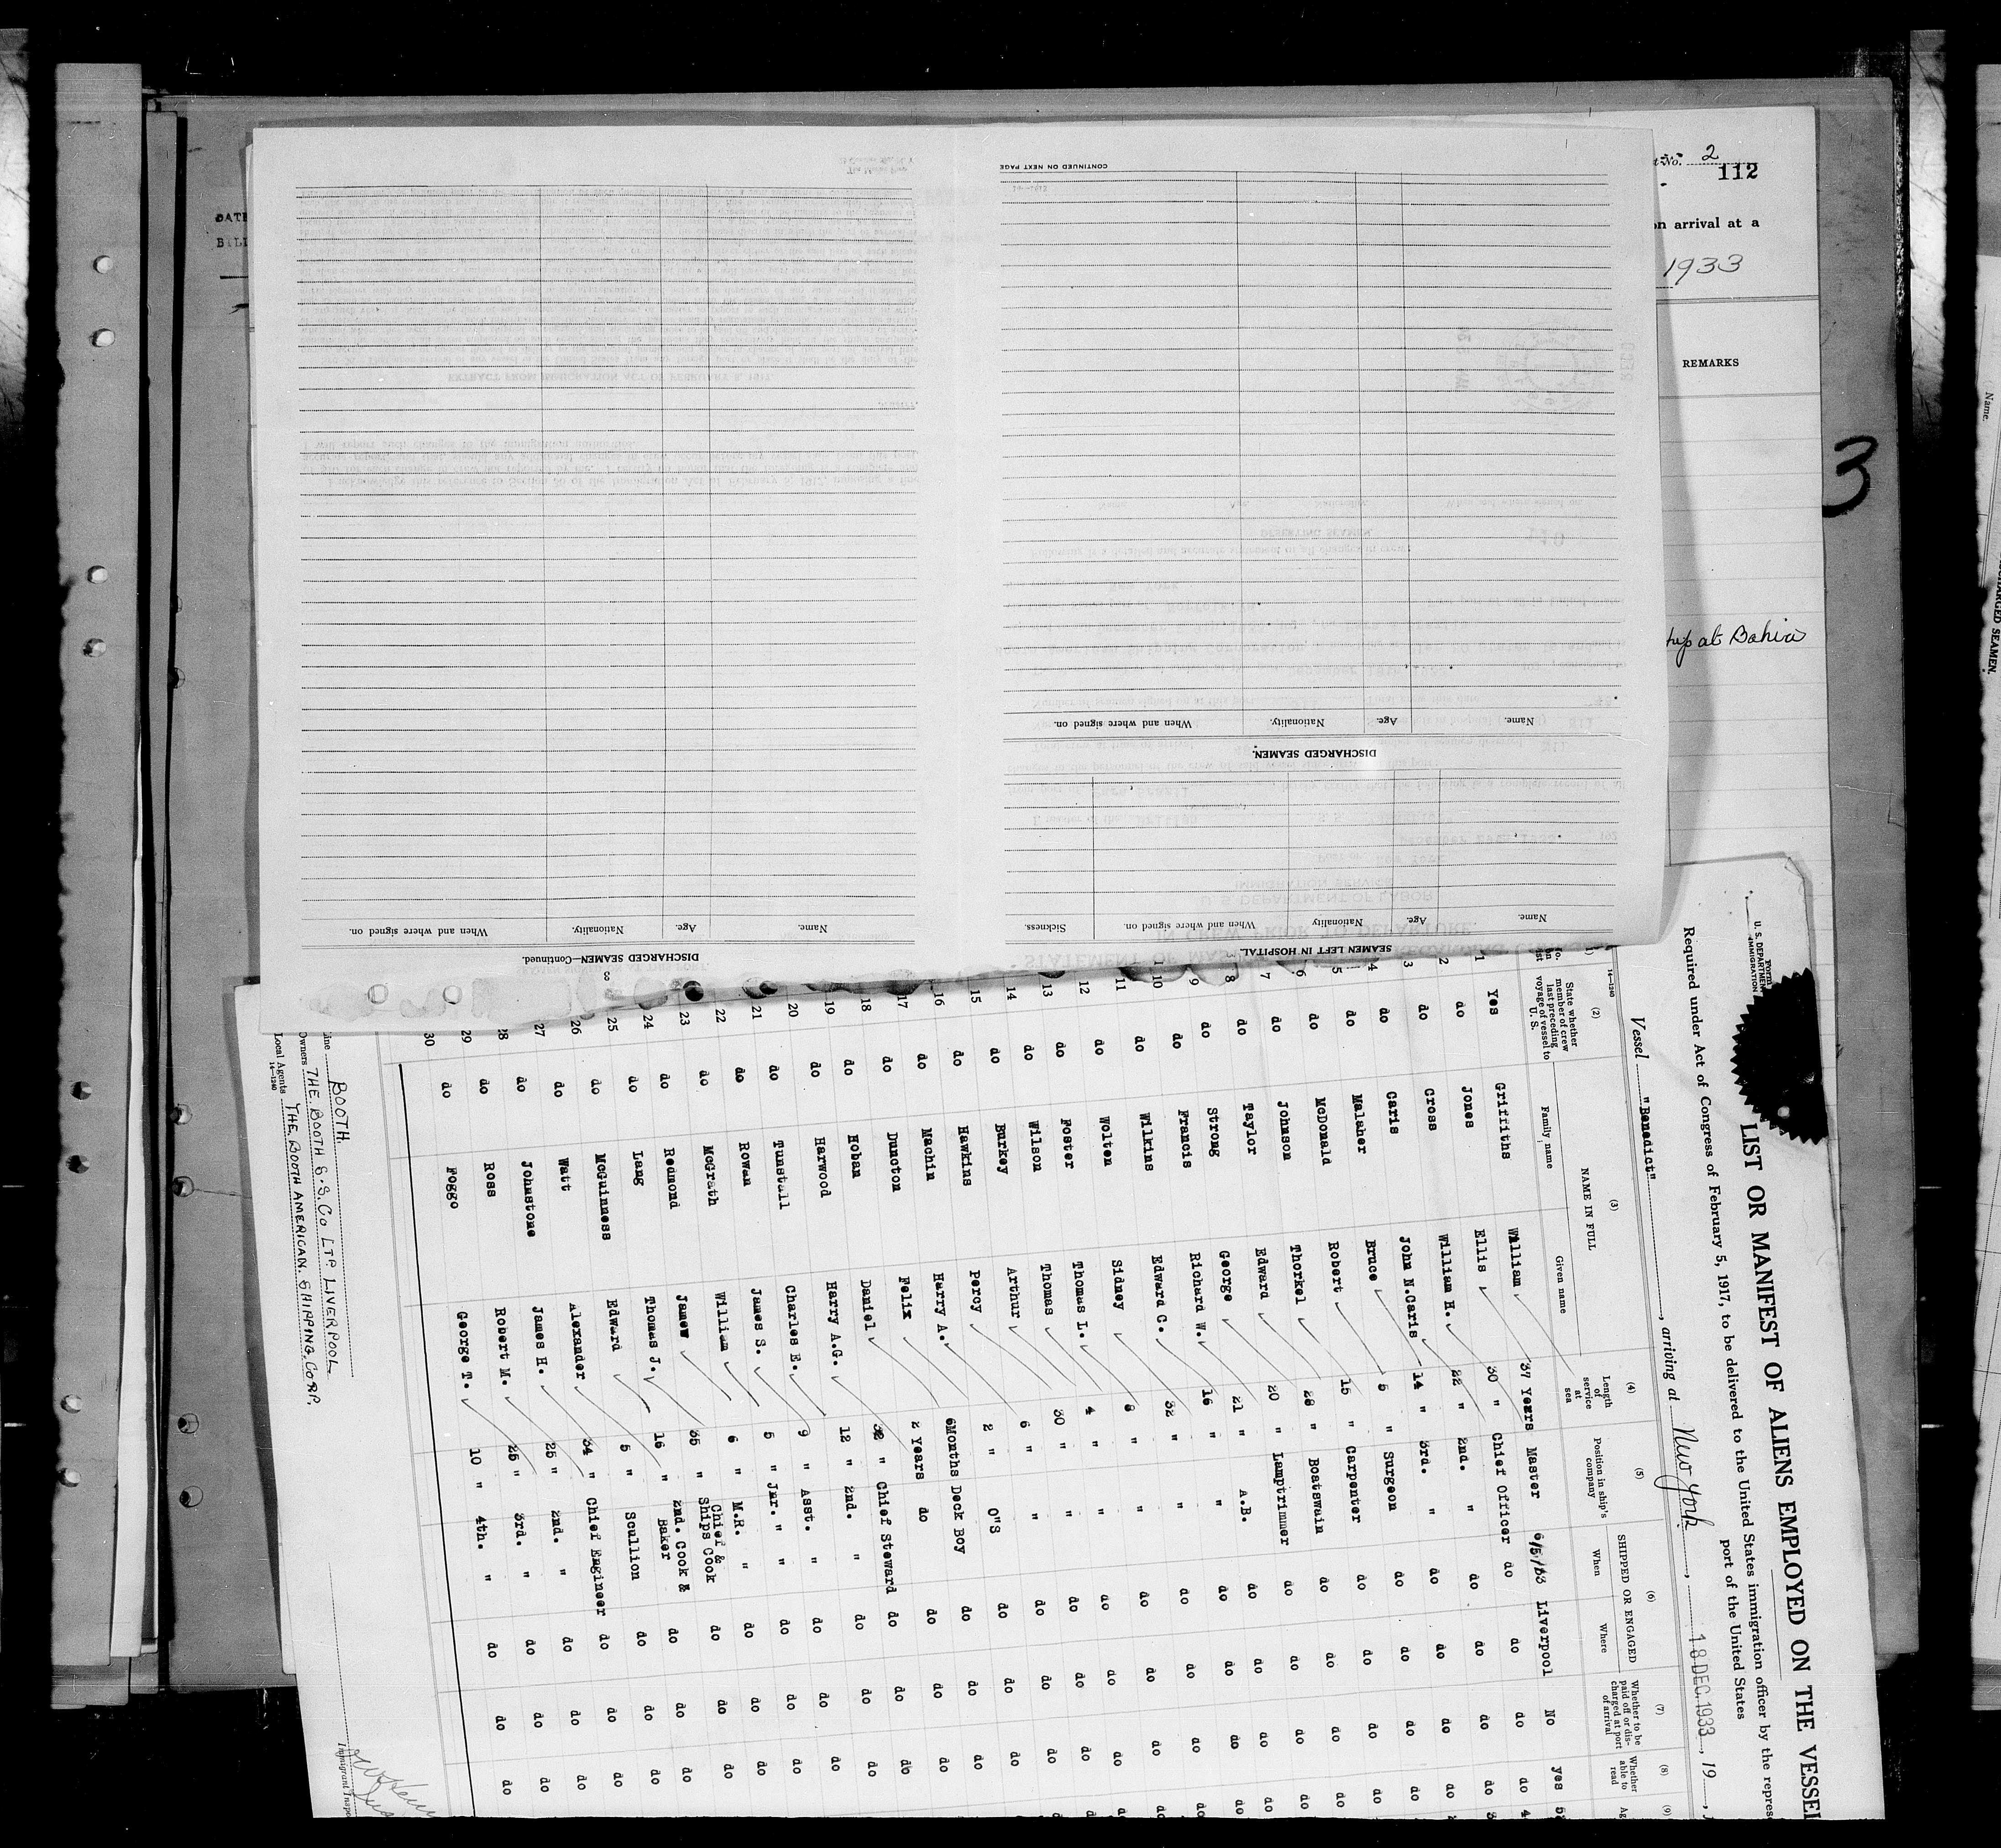 No. 2
112
on arrival at a
1933
REMARKS
at Bahia
3
DATE
BILL
CONTINUED ON NEXT PAGE
SEAMEN LEFT IN HOSPITAL.
Name. Age. Nationality. When and where signed on. Sickness.
DISCHARGED SEAMEN.
Name. Age. Nationality. When and where signed on.
3
DISCHARGED SEAMEN—Continued.
Name. Age. Nationality. When and where signed on.
Form
U. S. DEPARTMENT
IMMIGRATION
LIST OR MANIFEST OF ALIENS EMPLOYED ON THE VESSEL
Required under Act of Congress of February 5, 1917, to be delivered to the United States immigration officer by the repres
port of the United States
Vessel "Benedict", arriving at New York, 18 DEC. 1933, 19
14—1240
(2) (3) (4) (5) (6) (7) (8) (9)
State whether member of crew last preceding voyage of vessel to U. S.
NAME IN FULL
Family name Given name
Length of service at sea
Position in ship's company
SHIPPED OR ENGAGED
When Where
Whether to be paid off or discharged at port of arrival
Whether able to read
1 Yes Griffiths William 37 Years Master 6/5/33 Liverpool No yes
2 do Jones Ellis 30 " Chief Officer do do do do
3 do Cross William H. 22 " 2nd. " do do do do
4 do Caris John N.Caris 14 " 3rd. " do do do do
5 do Malaher Bruce 5 " Surgeon do do do do
6 do McDonald Robert 15 " Carpenter do do do do
7 do Johnson Thorkel 28 " Boatswain do do do do
8 do Taylor Edward 20 " Lamptrimmer do do do do
9 do Strong George 21 " A.B. do do do do
10 do Francis Richard W. 16 " " do do do do
11 do Wilkins Edward C. 32 " " do do do do
12 do Wolten Sidney 8 " " do do do do
13 do Foster Thomas L. 4 " " do do do do
14 do Wilson Thomas 30 " " do do do do
15 do Burkey Arthur 6 " " do do do do
16 do Hawkins Percy 2 " O"S do do do do
17 do Machin Harry A. 6Months Deck Boy do do do do
18 do Duncton Felix 2 Years do do do do do
19 do Hoban Daniel 32 " Chief Steward do do do do
20 do Harwood Harry A.G. 12 " 2nd. " do do do do
21 do Tunstall Charles E. 9 " Asst. " do do do do
22 do Rowan James S. 5 " Jnr. " " do do do do
23 do McGrath William 6 " M.R. " do do do do
24 do Redmond James 35 " Chief & Ships Cook do do do do
25 do Lang Thomas J. 16 " 2nd. Cook & Baker do do do do
26 do McGuinness Edward 5 " Scullion do do do do
27 do Watt Alexander 34 " Chief Engineer do do do do
28 do Johnstone James H. 25 " 2nd. " do do do do
29 do Ross Robert M. 25 " 3rd. " do do do do
30 do Foggo George T. 10 " 4th. " do do do do
Line BOOTH.
Owners THE. BOOTH S.S. Co LTD. LIVERPOOL
Local Agents THE. BOOTH AMERICAN. SHIPPING. CORP.
14—1240
Immigrant Inspe
Name.
DISCHARGED SEAMEN.